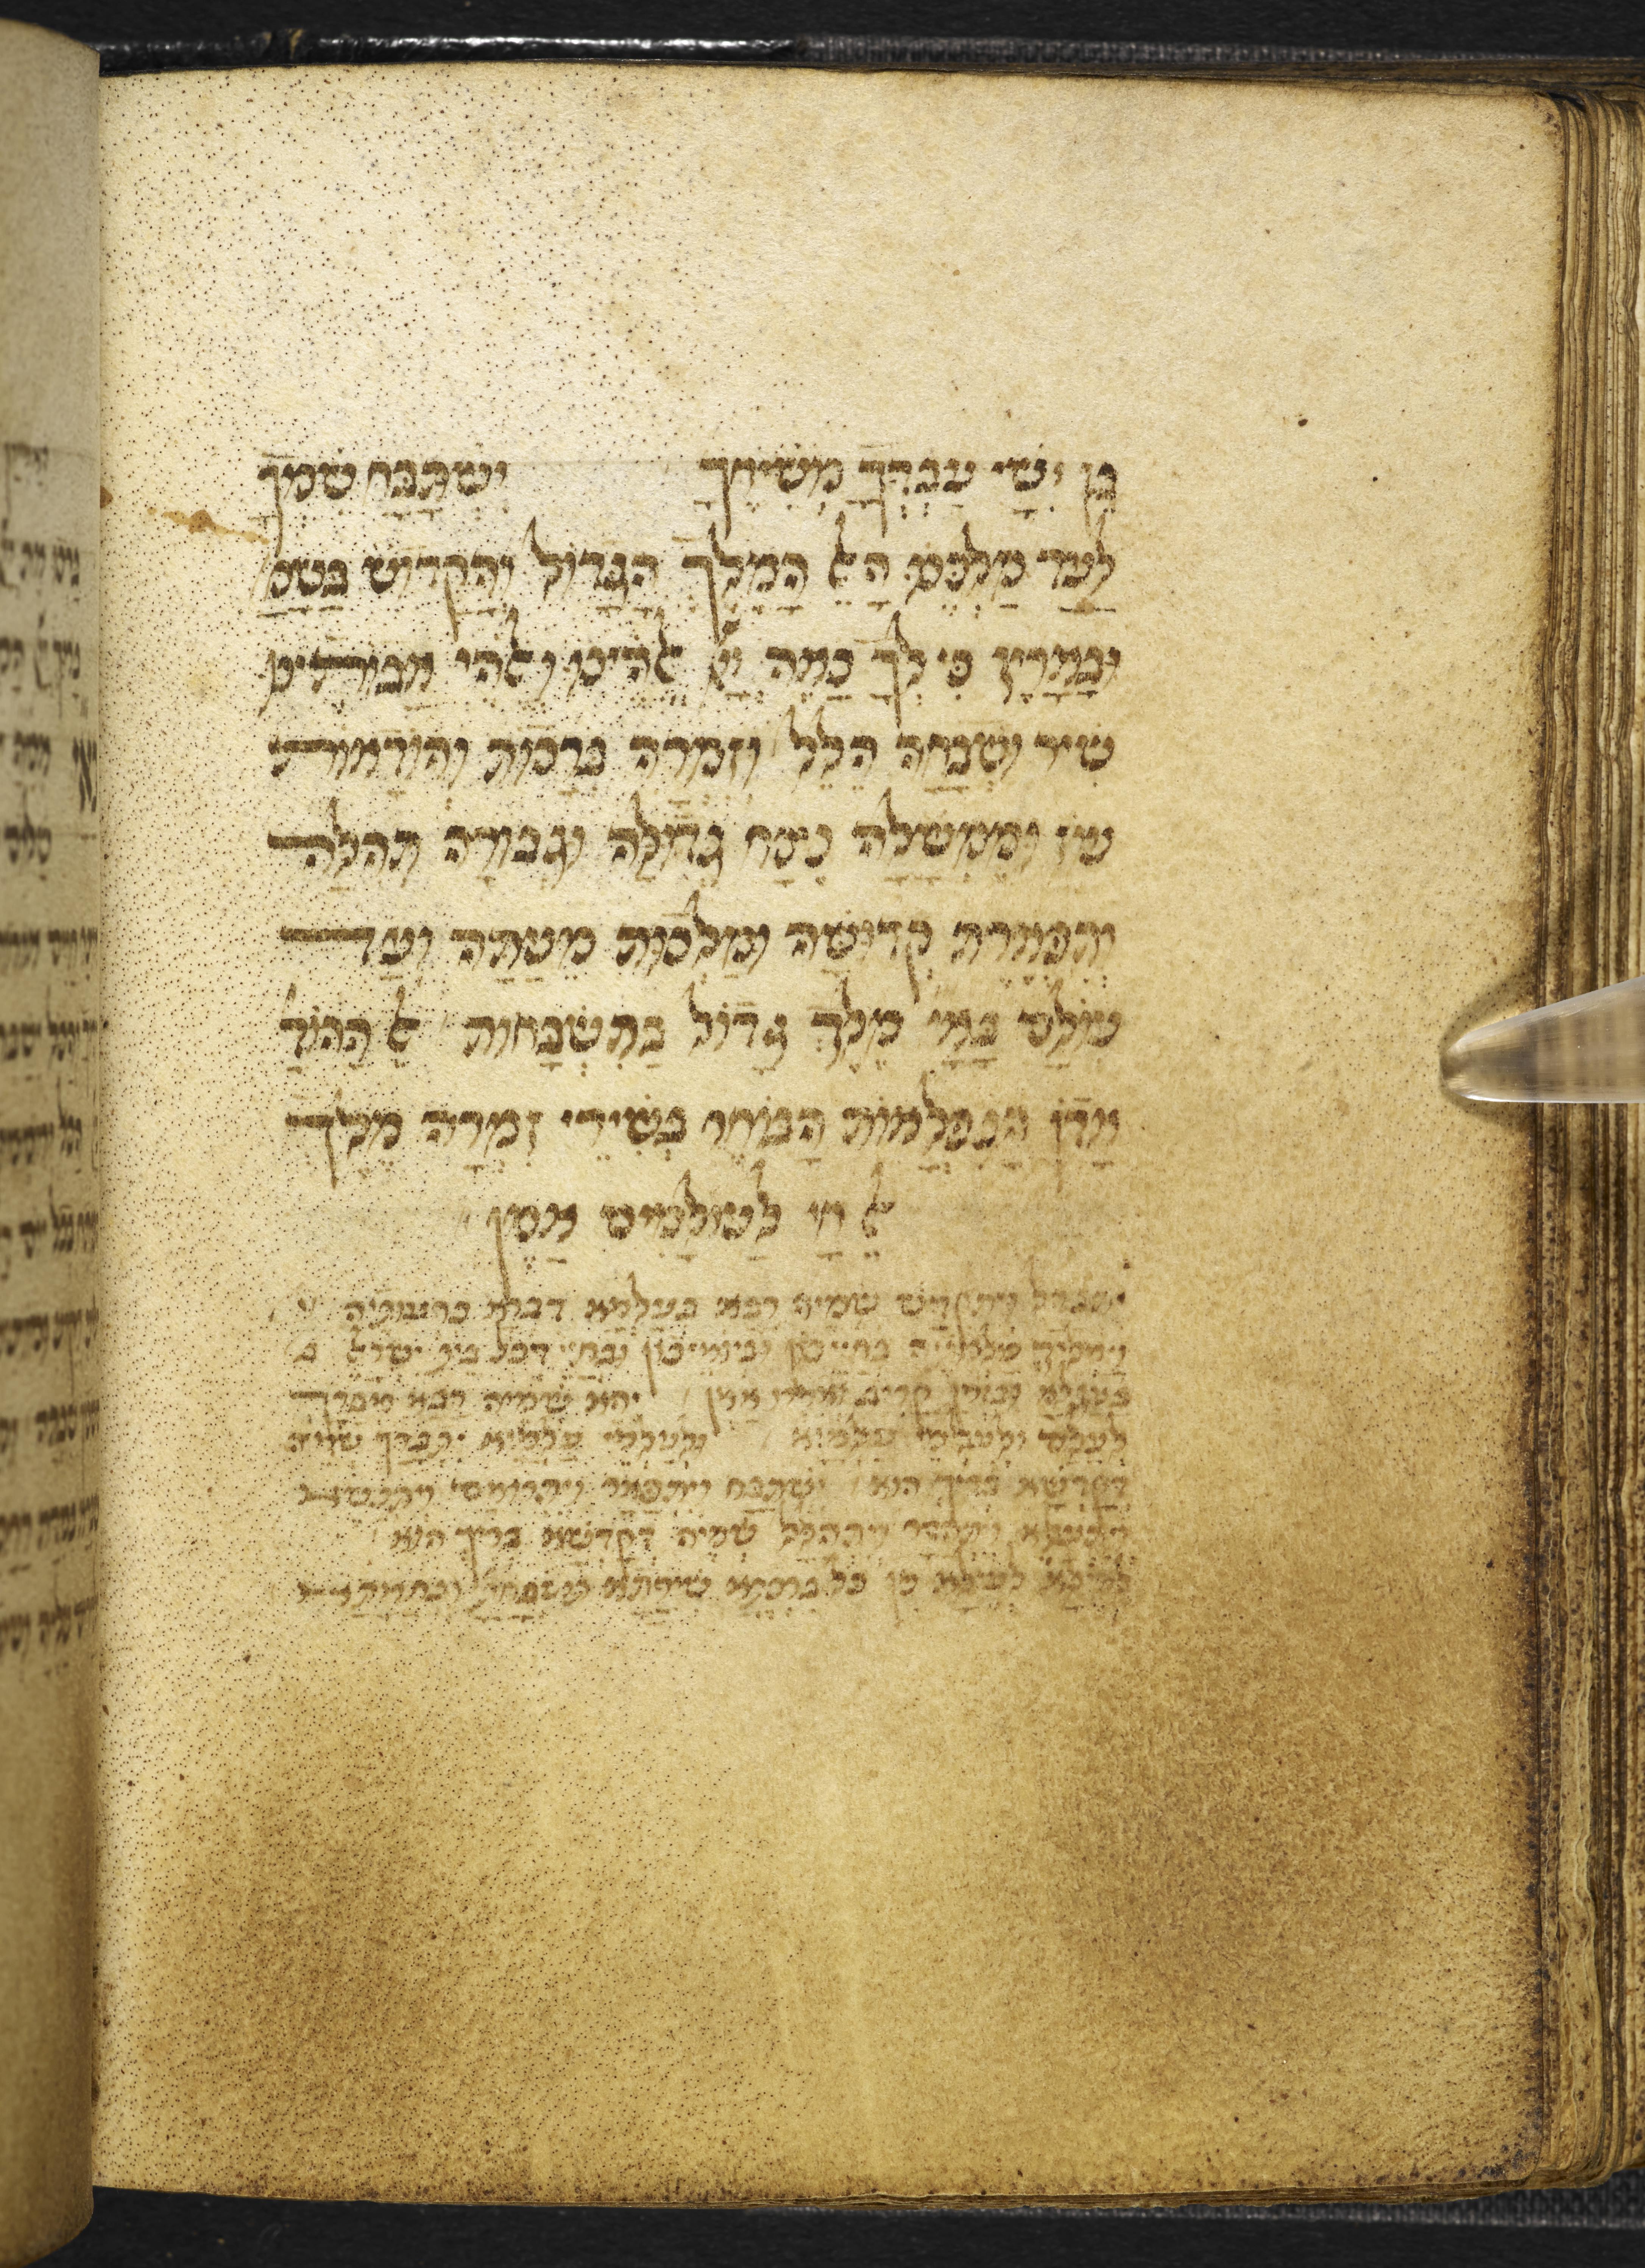 בן ישי עבדך משיחך ישתבח שמך
לעד מלכנו האל המלך הגדול והקדוש בשמ
ובארץ כי לך נאה יי אלהינו ואלהי אבותינו
שיר ושבחה הלל וזמרה ברכות והודאות
עוז וממשלה נצח גדולה וגבורה תהלה
ותפארת קדושה ומלכות מעתה ועד
עולם מלך גדול בתשבחות אל ההוד
אדון הנפלאות הבוחר בשירי זמרה מלך
אל חי לעולמים אמן
יתגדל ויתקדש שמיה רבא בעלמא דברא כרעותיה
וימליך מלכותיה בחייכון וביומיכון ובחיי דכל בית ישראל ב
בעגלא ובזמן קריב ואמרו אמן יהא שמיה רבא מברך
לעלם ולעלמי עלמיא ולעלמי עלמיא יתברך שמיה
דקדשא בריך הוא ישתבח ויתפאר ויתרומם ויתנשא
ויתעלה ויתהדר ויתהלל שמיה דקדשא בריך הוא
לעילא לעילא מן כל ברכתא שירתא תושבחתא ונחמתא